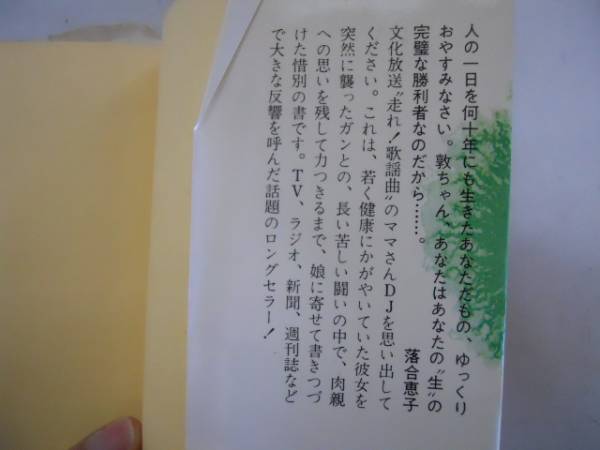 人の一日を何十年にも生きたあなただもの、ゆっくり
おやすみなさい。敦ちゃん、あなたはあなたの〝生〟の
完璧な勝利者なのだから……。
落合恵子
文化放送〝走れ!歌謡曲〟のママさんDJを思い出して
ください。これは、若く健康にかがやいていた彼女を
突然に襲ったガンとの、長い苦しい闘いの中で、肉親
への思いを残して力つきるまで、娘に寄せて書きつづ
けた惜別の書です。TV、ラジオ、新聞、週刊誌など
で大きな反響を呼んだ話題のロングセラー!